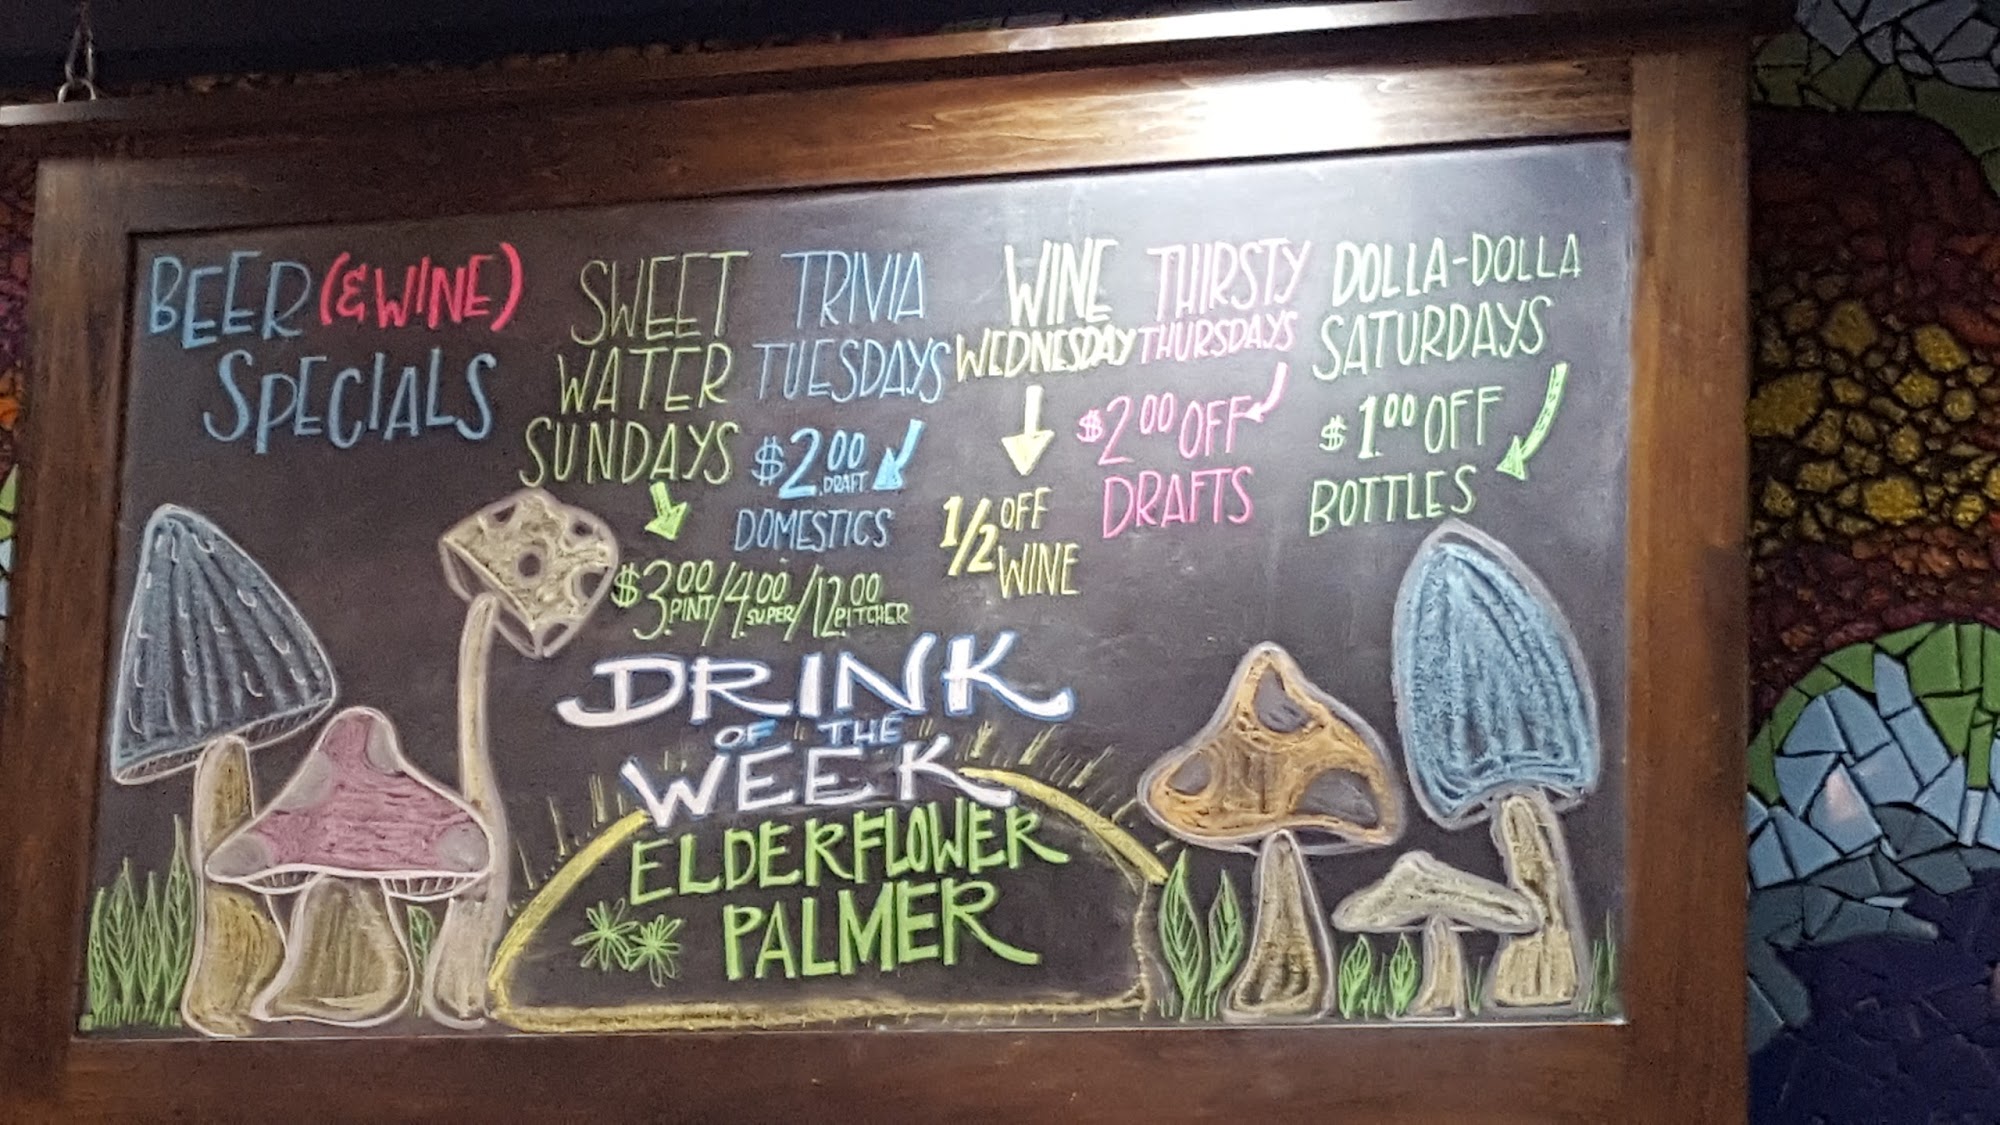 BEER (& WINE)
SPECIALS
SWEET
WATER
SUNDAYS
$3.00 PINT/4.00 SUPER/12.00 PITCHER
TRIVIA
TUESDAYS
$2.00 DRAFT
DOMESTICS
WINE
WEDNESDAY
1/2 OFF
WINE
THIRSTY
THURSDAYS
$2.00 OFF
DRAFTS
DOLLA-DOLLA
SATURDAYS
$1.00 OFF
BOTTLES
DRINK
OF THE
WEEK
ELDERFLOWER
PALMER